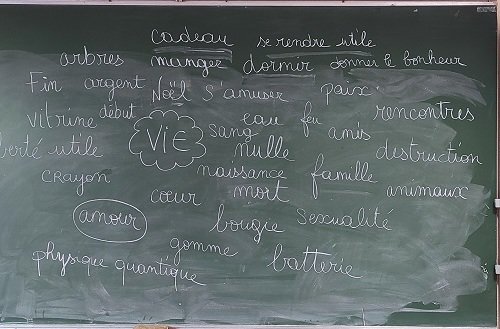 cadeau se rendre utile
arbres manger dormir donner le bonheur
Fin argent Noël s'amuser paix
vitrine début eau feu rencontres
VIE sang amis
utile nulle destruction
crayon naissance famille
coeur mort animaux
amour bougie sexualité
gomme
physique quantique batterie